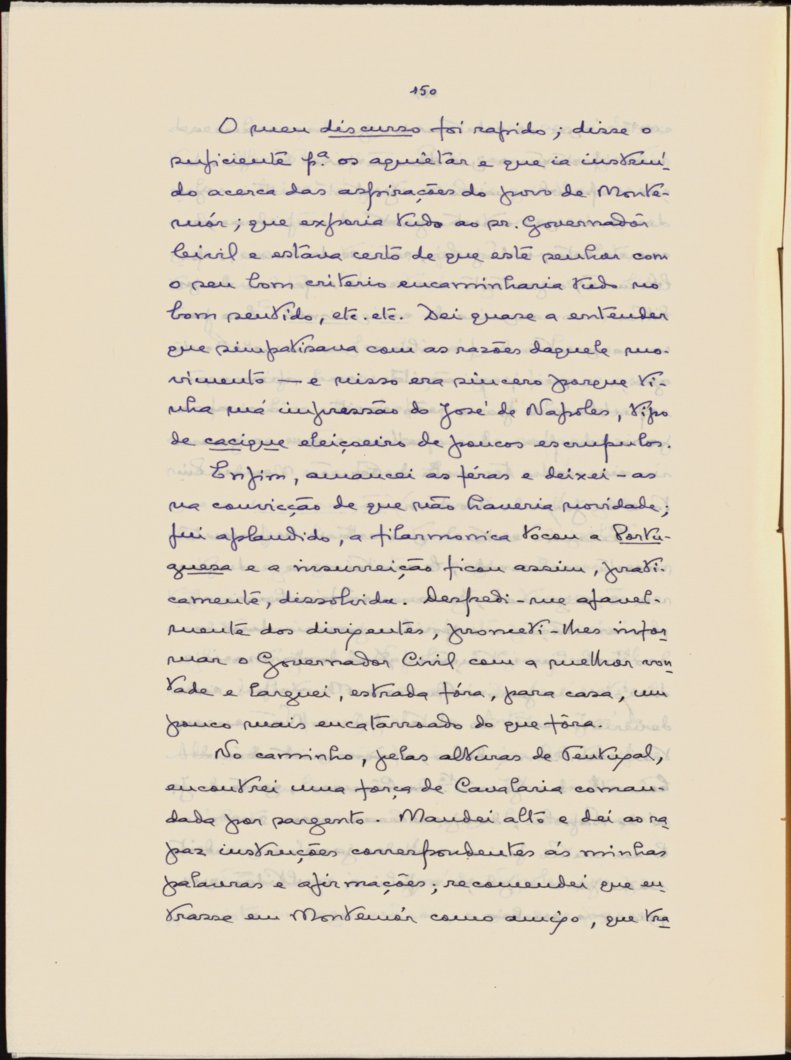 150
O meu discurso foi rapido; disse o
suficiente pª. os aquietar e que ia instrui-
do acerca das aspirações do povo de Monte-
mór; que exporia tudo ao sr. Governador
Civil e estava certo de que este senhor com
o seu bom criterio encaminharia tudo no
bom sentido, etc. etc. Dei quase a entender
que simpatisava com as razões daquele mo-
vimento — e nisso era sincero porque ti-
nha má impressão do José de Napoles, tipo
de cacique eleiçoeiro de poucos escrupulos.
Enfim, amancei as féras e deixei-as
na convicção de que não haveria novidade;
fui aplaudido, a filarmonica tocou a Portu-
guesa e a insurreição ficou assim, prati-
camente, dissolvida. Despedi-me afavel-
mente dos dirigentes, prometi-lhes infor-
mar o Governador Civil com a melhor von-
tade e larguei, estrada fóra, para casa, um
pouco mais encatarroado do que fôra.
No caminho, pelas alturas de Tentugal,
encontrei uma força de Cavalaria coman-
dada por sargento. Mandei alto e dei ao ra-
paz instruções correspondentes ás minhas
palavras e afirmações; recomendei que en-
trasse em Montemór como amigo, que tra-